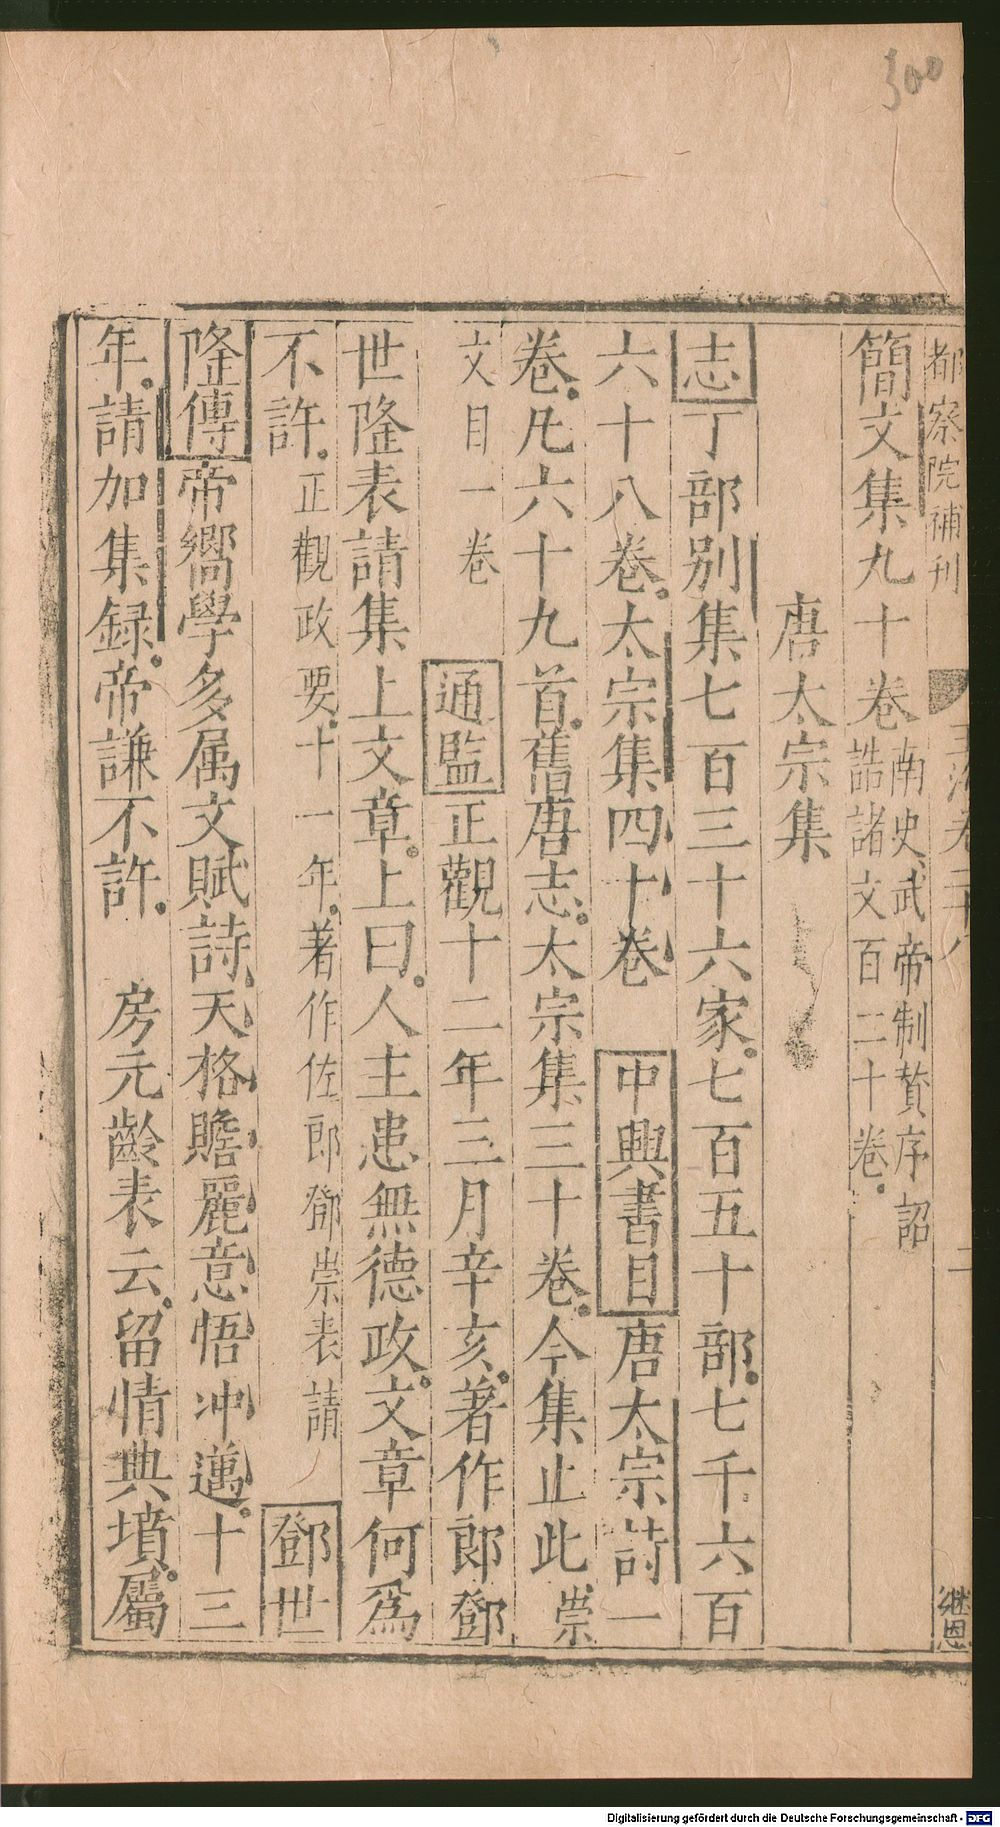 300
都察院補刊
玉海卷二十八
二
继恩
簡文集九十卷南史武帝制贊序詔
誥諸文百二十卷
唐太宗集
志丁部别集七百三十六家七百五十部七千六百
六十八卷太宗集四十卷 中興書目唐太宗詩一
卷凡六十九首舊唐志太宗集三十卷今集止此崇
文目一卷 通監正觀十二年三月辛亥著作郎鄧
世隆表請集上文章上曰人主患無德政文章何爲
不許正觀政要十一年著作佐郎鄧崇表請 鄧世
隆傳帝嚮學多属文賦詩天格贍麗意悟冲邁十三
年請加集録帝謙不許 房元齡表云留情典墳屬
Digitalisierung gefördert durch die Deutsche Forschungsgemeinschaft - DFG